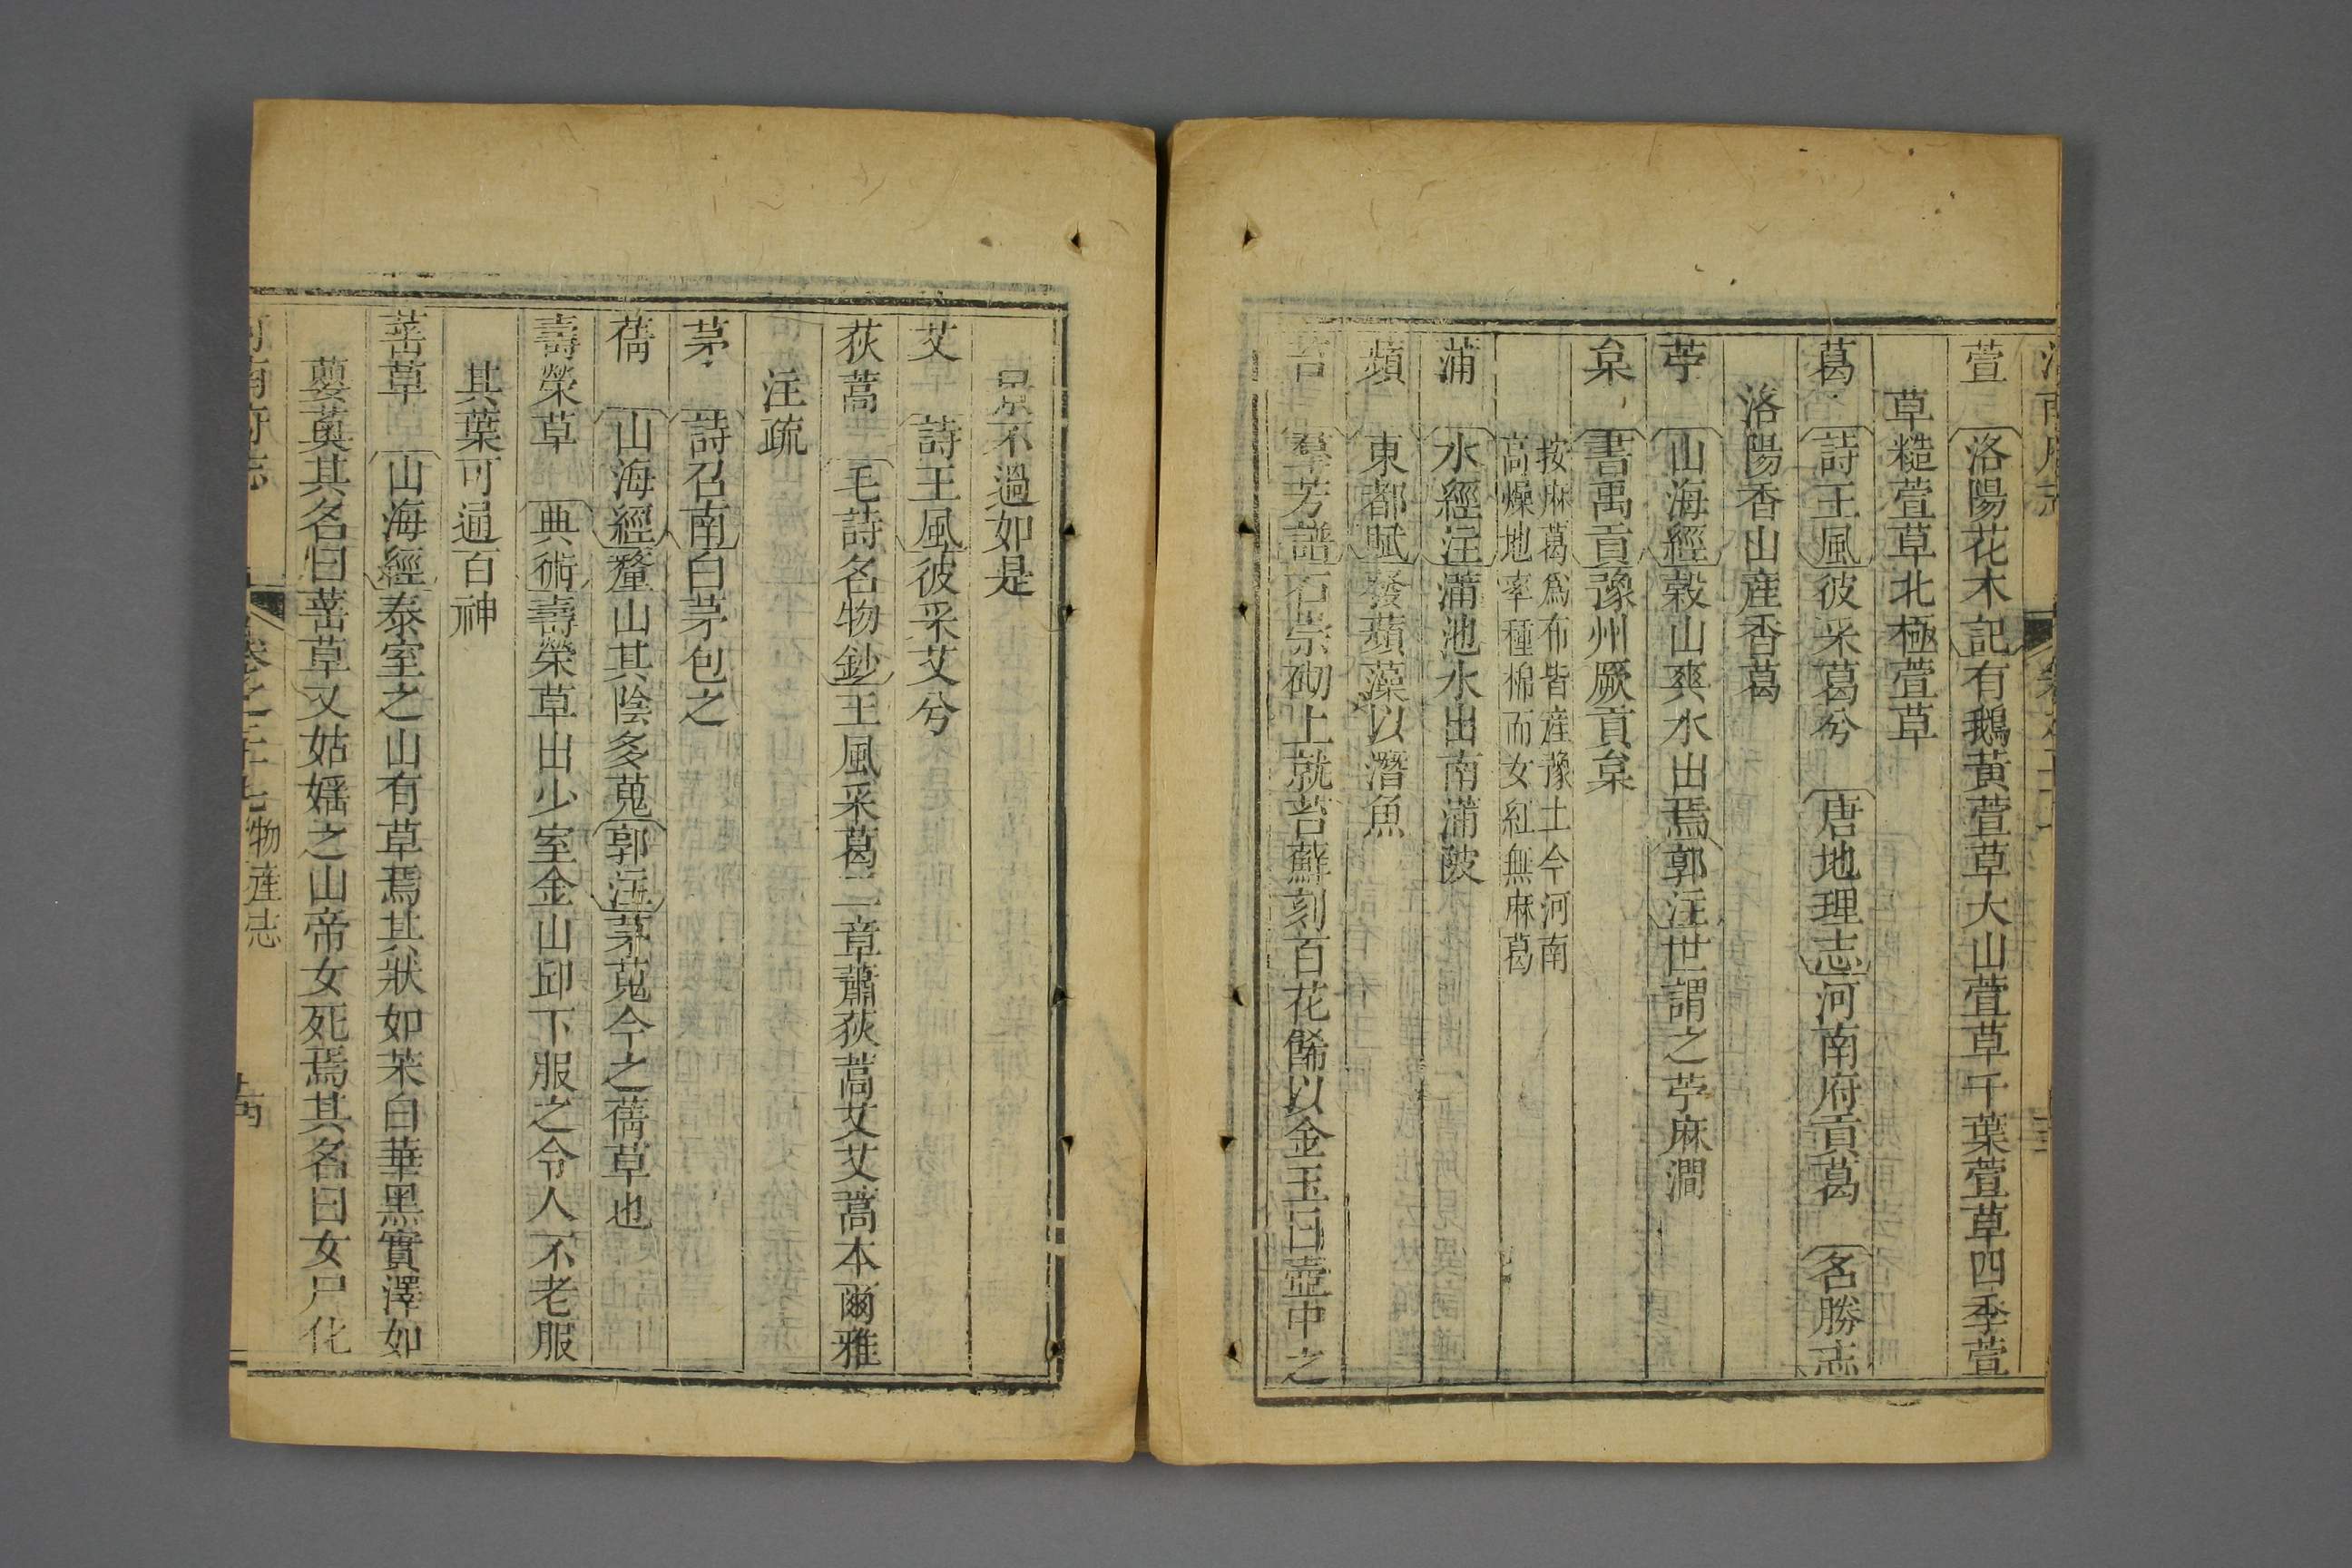 萱 洛陽花木記有鵝黃萱草大山萱草千葉萱草四季萱
草糙萱草北極萱草
葛 詩王風彼采葛兮 唐地理志河南府貢葛 名勝志
洛陽香山産香葛
苧 山海經穀山爽水出焉郭注世謂之苧麻澗
枲 書禹貢豫州厥貢枲
按麻葛爲布皆産豫土今河南
高燥地率種棉而女紅無麻葛
蒲 水經注蒲池水出南蒲陂
蘋 東都賦發蘋藻以潛魚
苔 羣芳譜石崇砌上就苔蘚刻百花餙以金玉曰壺中之
景不過如是
艾 詩王風彼采艾兮
荻蒿 毛詩名物鈔王風采葛二章蕭荻蒿艾艾蒿本爾雅
注疏
茅 詩召南白茅包之
蒨 山海經釐山其陰多蒐郭注茅蒐今之蒨草也
壽榮草 典術壽榮草出少室金山卽下服之令人不老服
其葉可通百神
䔄草 山海經泰室之山有草焉其狀如茱白華黑實澤如
蘡薁其名曰䔄草又姑媱之山帝女死焉其名曰女尸化
河南府志
卷之二十七物産志